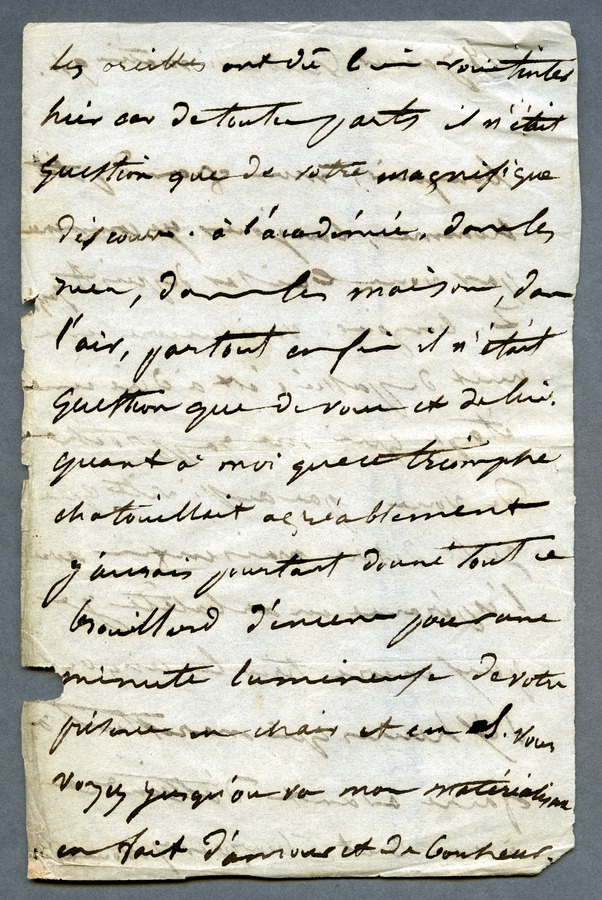 les oreilles ont dû bien vous tinter
hier car de toutes parts il n'était
question que de votre magnifique
discours. à l'académie, dans les
rues, dans les maisons, dans
l'air, partout enfin il n'était
question que de vous et de lui.
quant à moi que ce triomphe
chatouillait agréablement
j'aurais pourtant donné tout ce
brouillard d'encens pour une
minute lumineuse de votre
présence en chair et en os. vous
voyez jusqu'où va mon matérialisme
en fait d'amour et de bonheur.